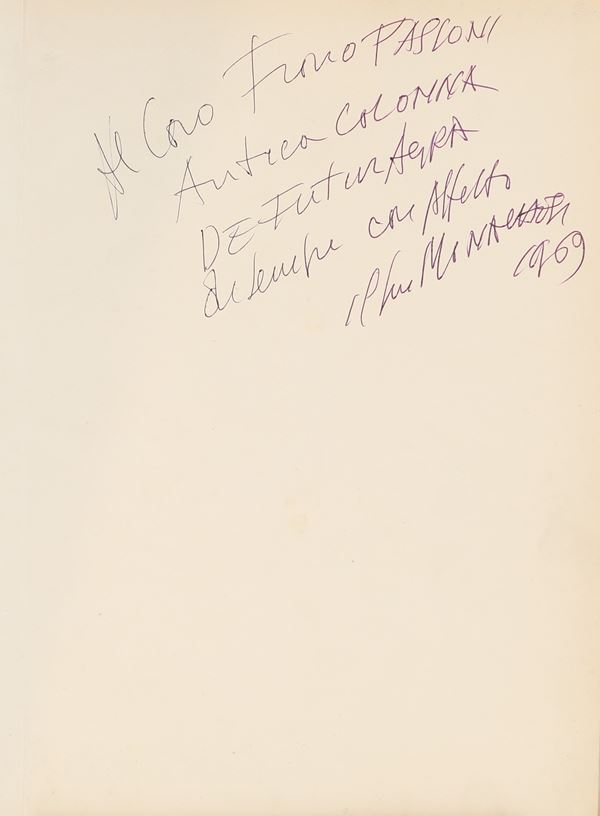 Al Caro Franco PASLONI
Antica COLONNA
DE FUTUR AGRA
di sempre con Affetto
il suo MONACHESI
1969